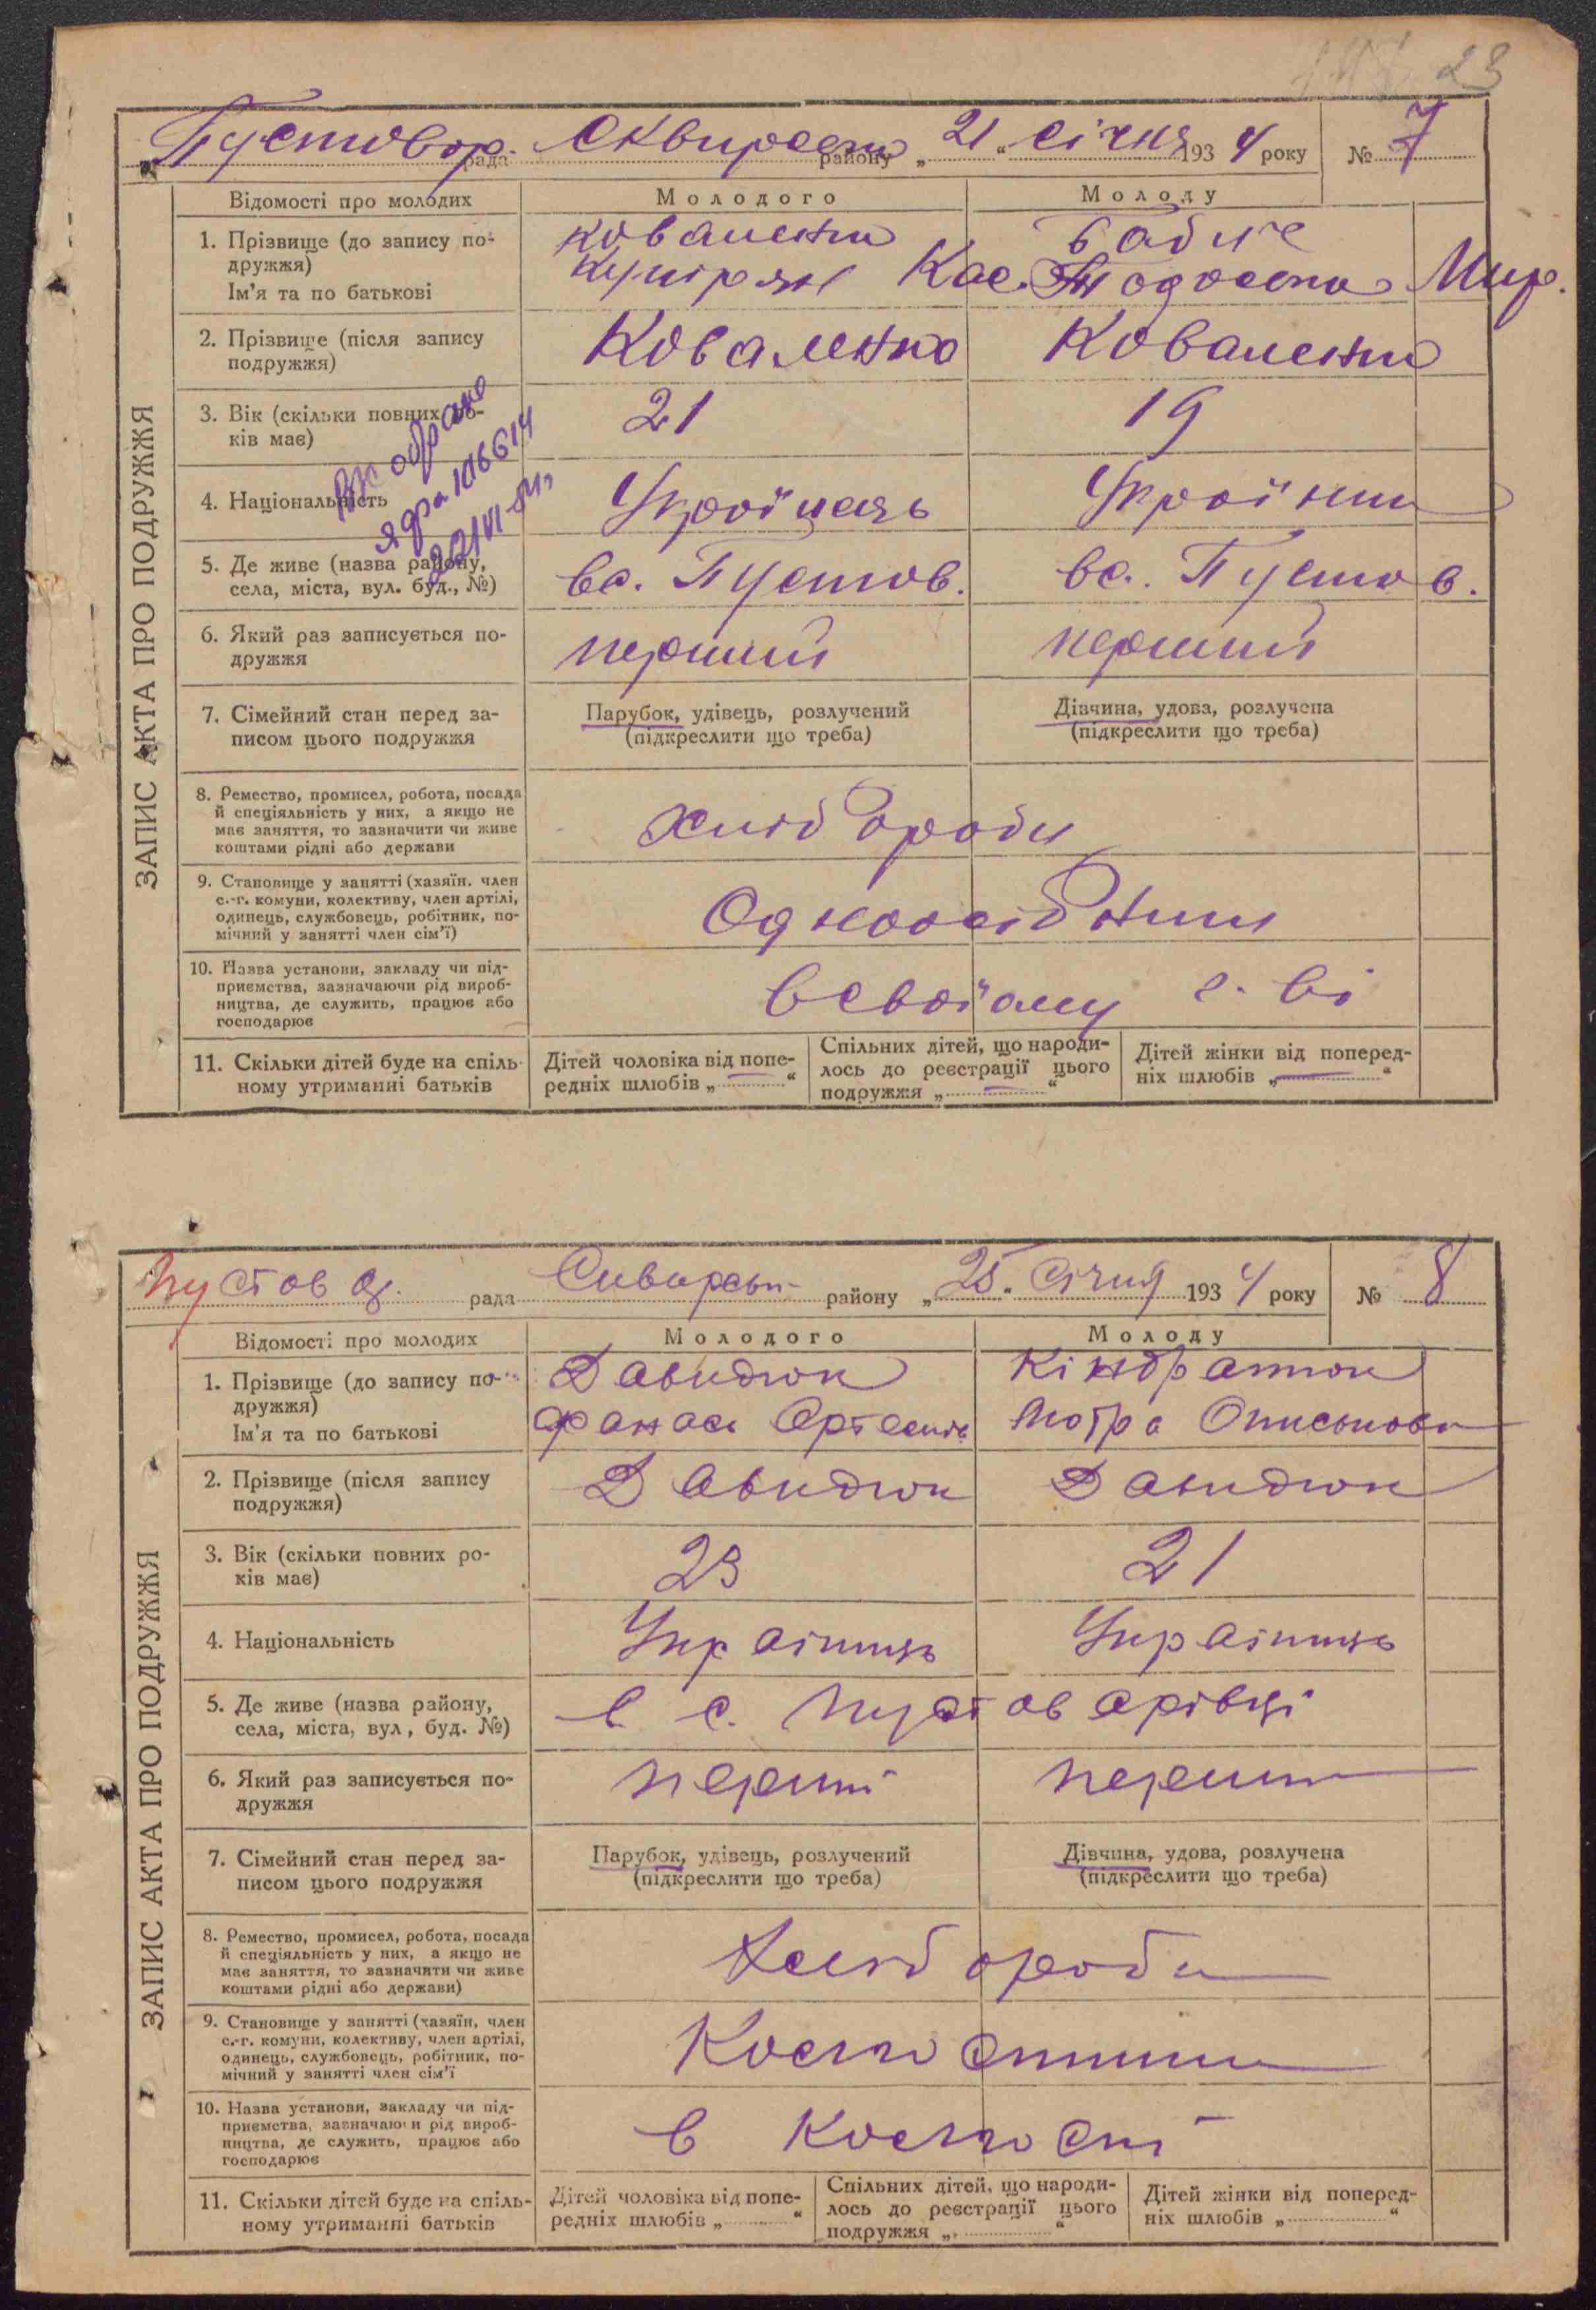 23
Пустовар. рада Сквирськ району „21“ січня 1934 року № 7
ЗАПИС АКТА ПРО ПОДРУЖЖЯ
Відомості про молодих
Молодого
Молоду
1. Прізвище (до запису по-
дружжя)
Ім'я та по батькові
Коваленко
Купріян Кас.
Бабле
Тодоска Мир.
2. Прізвище (після запису
подружжя)
Коваленко
Коваленко
3. Вік (скільки повних ро-
ків має)
21
19
4. Національність
Українець
Українка
5. Де живе (назва району,
села, міста, вул. буд., №)
вс. Пустов.
вс. Пустов.
6. Який раз записується по-
дружжя
перший
перший
7. Сімейний стан перед за-
писом цього подружжя
Парубок, удівець, розлучений
(підкреслити що треба)
Дівчина, удова, розлучена
(підкреслити що треба)
8. Ремество, промисел, робота, посада
й спеціяльність у них, а якщо не
має заняття, то зазначити чи живе
коштами рідні або держави
Хліб ороби
9. Становище у занятті (хазяїн. член
с.-г. комуни, колективу, член артілі,
одинець, службовець, робітник, по-
мічний у занятті член сім'ї)
Одноосібники
10. Назва установи, закладу чи під-
приємства, зазначаючи рід вироб-
ництва, де служить, працює або
господарює
всвоїому г. ві
11. Скільки дітей буде на спіль-
ному утриманні батьків
Дітей чоловіка від попе-
редніх шлюбів „ “
Спільних дітей, що народи-
лось до реєстрації цього
подружжя „ “
Дітей жінки від поперед-
ніх шлюбів „ “
Пустов ар. рада Сквирськ району „25“ Січня 1934 року № 8
ЗАПИС АКТА ПРО ПОДРУЖЖЯ
Відомості про молодих
Молодого
Молоду
1. Прізвище (до запису по-
дружжя)
Ім'я та по батькові
Давидюк
Фанась Артемів
Кіндратюк
Мотра Ониськова
2. Прізвище (після запису
подружжя)
Давидюк
Давидюк
3. Вік (скільки повних ро-
ків має)
23
21
4. Національність
Українць
Українць
5. Де живе (назва району,
села, міста, вул, буд. №)
в с. Пустоварівці
6. Який раз записується по-
дружжя
перший
перший
7. Сімейний стан перед за-
писом цього подружжя
Парубок, удівець, розлучений
(підкреслити що треба)
Дівчина, удова, розлучена
(підкреслити що треба)
8. Ремество, промисел, робота, посада
й спеціяльність у них, а якщо не
має заняття, то зазначити чи живе
коштами рідні або держави)
Хліб ороби
9. Становище у занятті (хазяїн, член
с.-г. комуни, колективу, член артілі,
одинець, службовець, робітник, по-
мічний у занятті член сім'ї
Колгоспники
10. Назва установи, закладу чи під-
приємства, зазначаючи рід вироб-
ництва, де служить, працює або
господарює
в Колгоспі
11. Скільки дітей буде на спіль-
ному утриманні батьків
Дітей чоловіка від попе-
редніх шлюбів „ “
Спільних дітей, що народи-
лось до реєстрації цього
подружжя „ “
Дітей жінки від поперед-
ніх шлюбів „ “